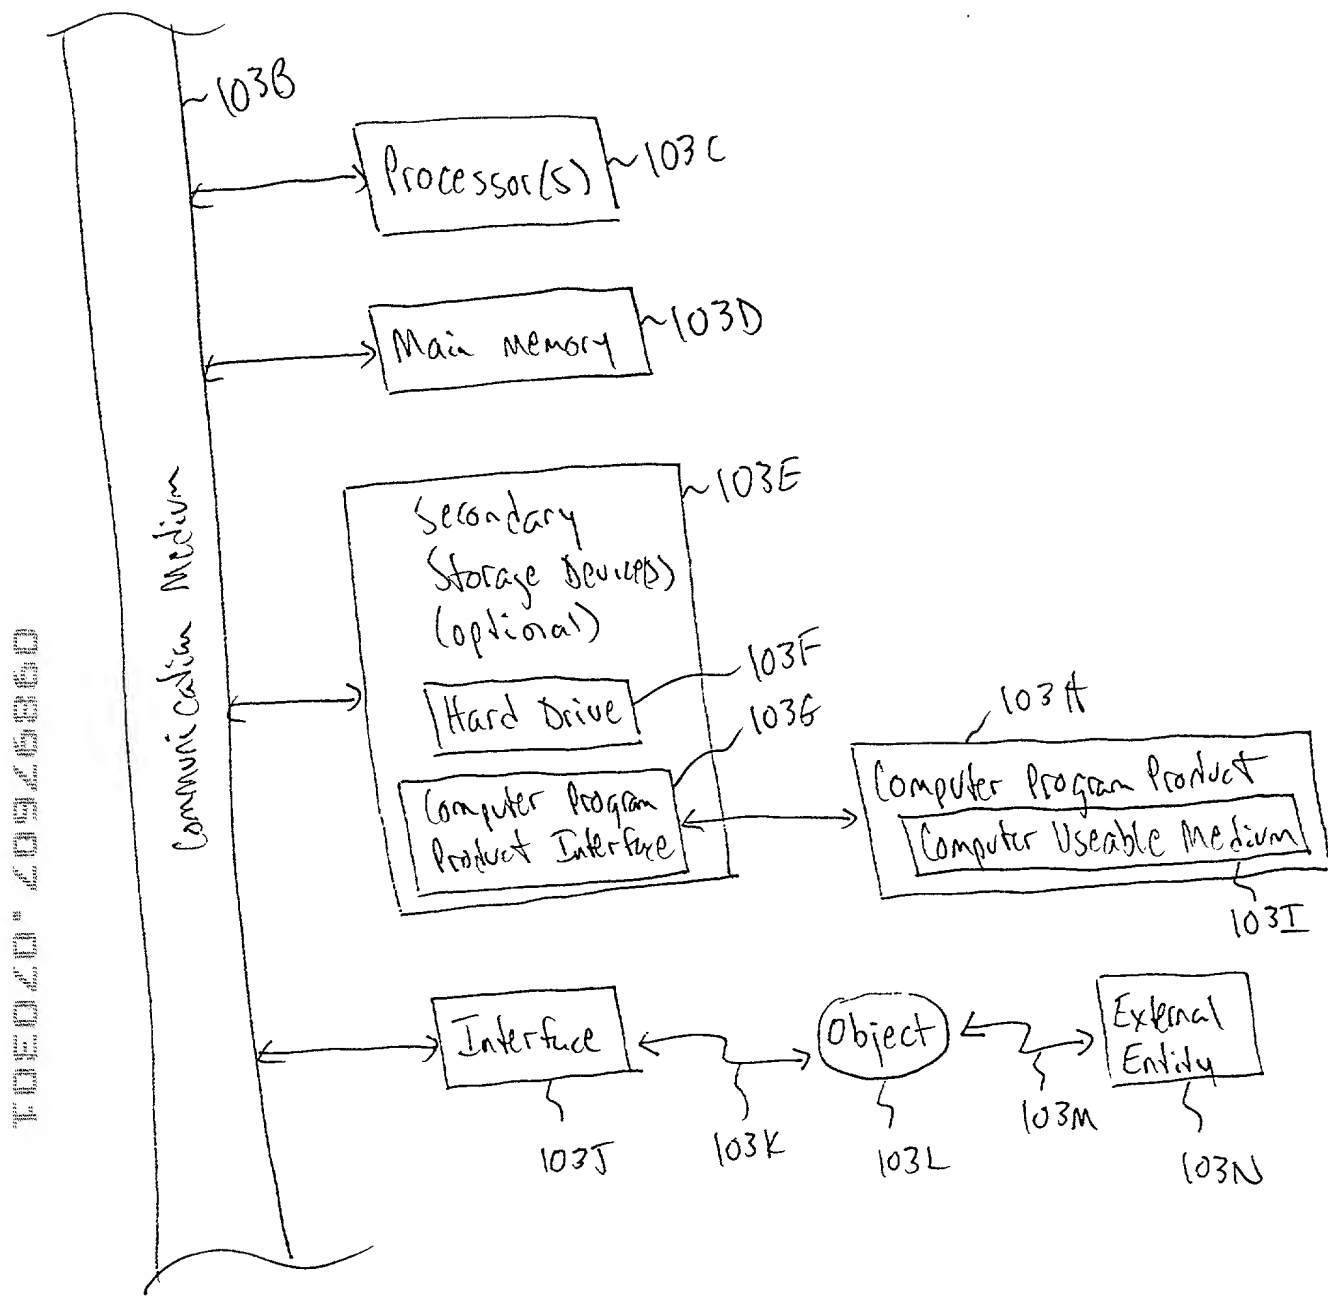 103B
Processor(s)
103C
Main Memory
103D
Communication Medium
103E
Secondary
Storage Device(s)
(optional)
103F
Hard Drive
103G
Computer Program
Product Interface
103A
Computer Program Product
Computer Useable Medium
103I
Interface
Object
External
Entity
103J
103K
103L
103M
103N
09897607.070301